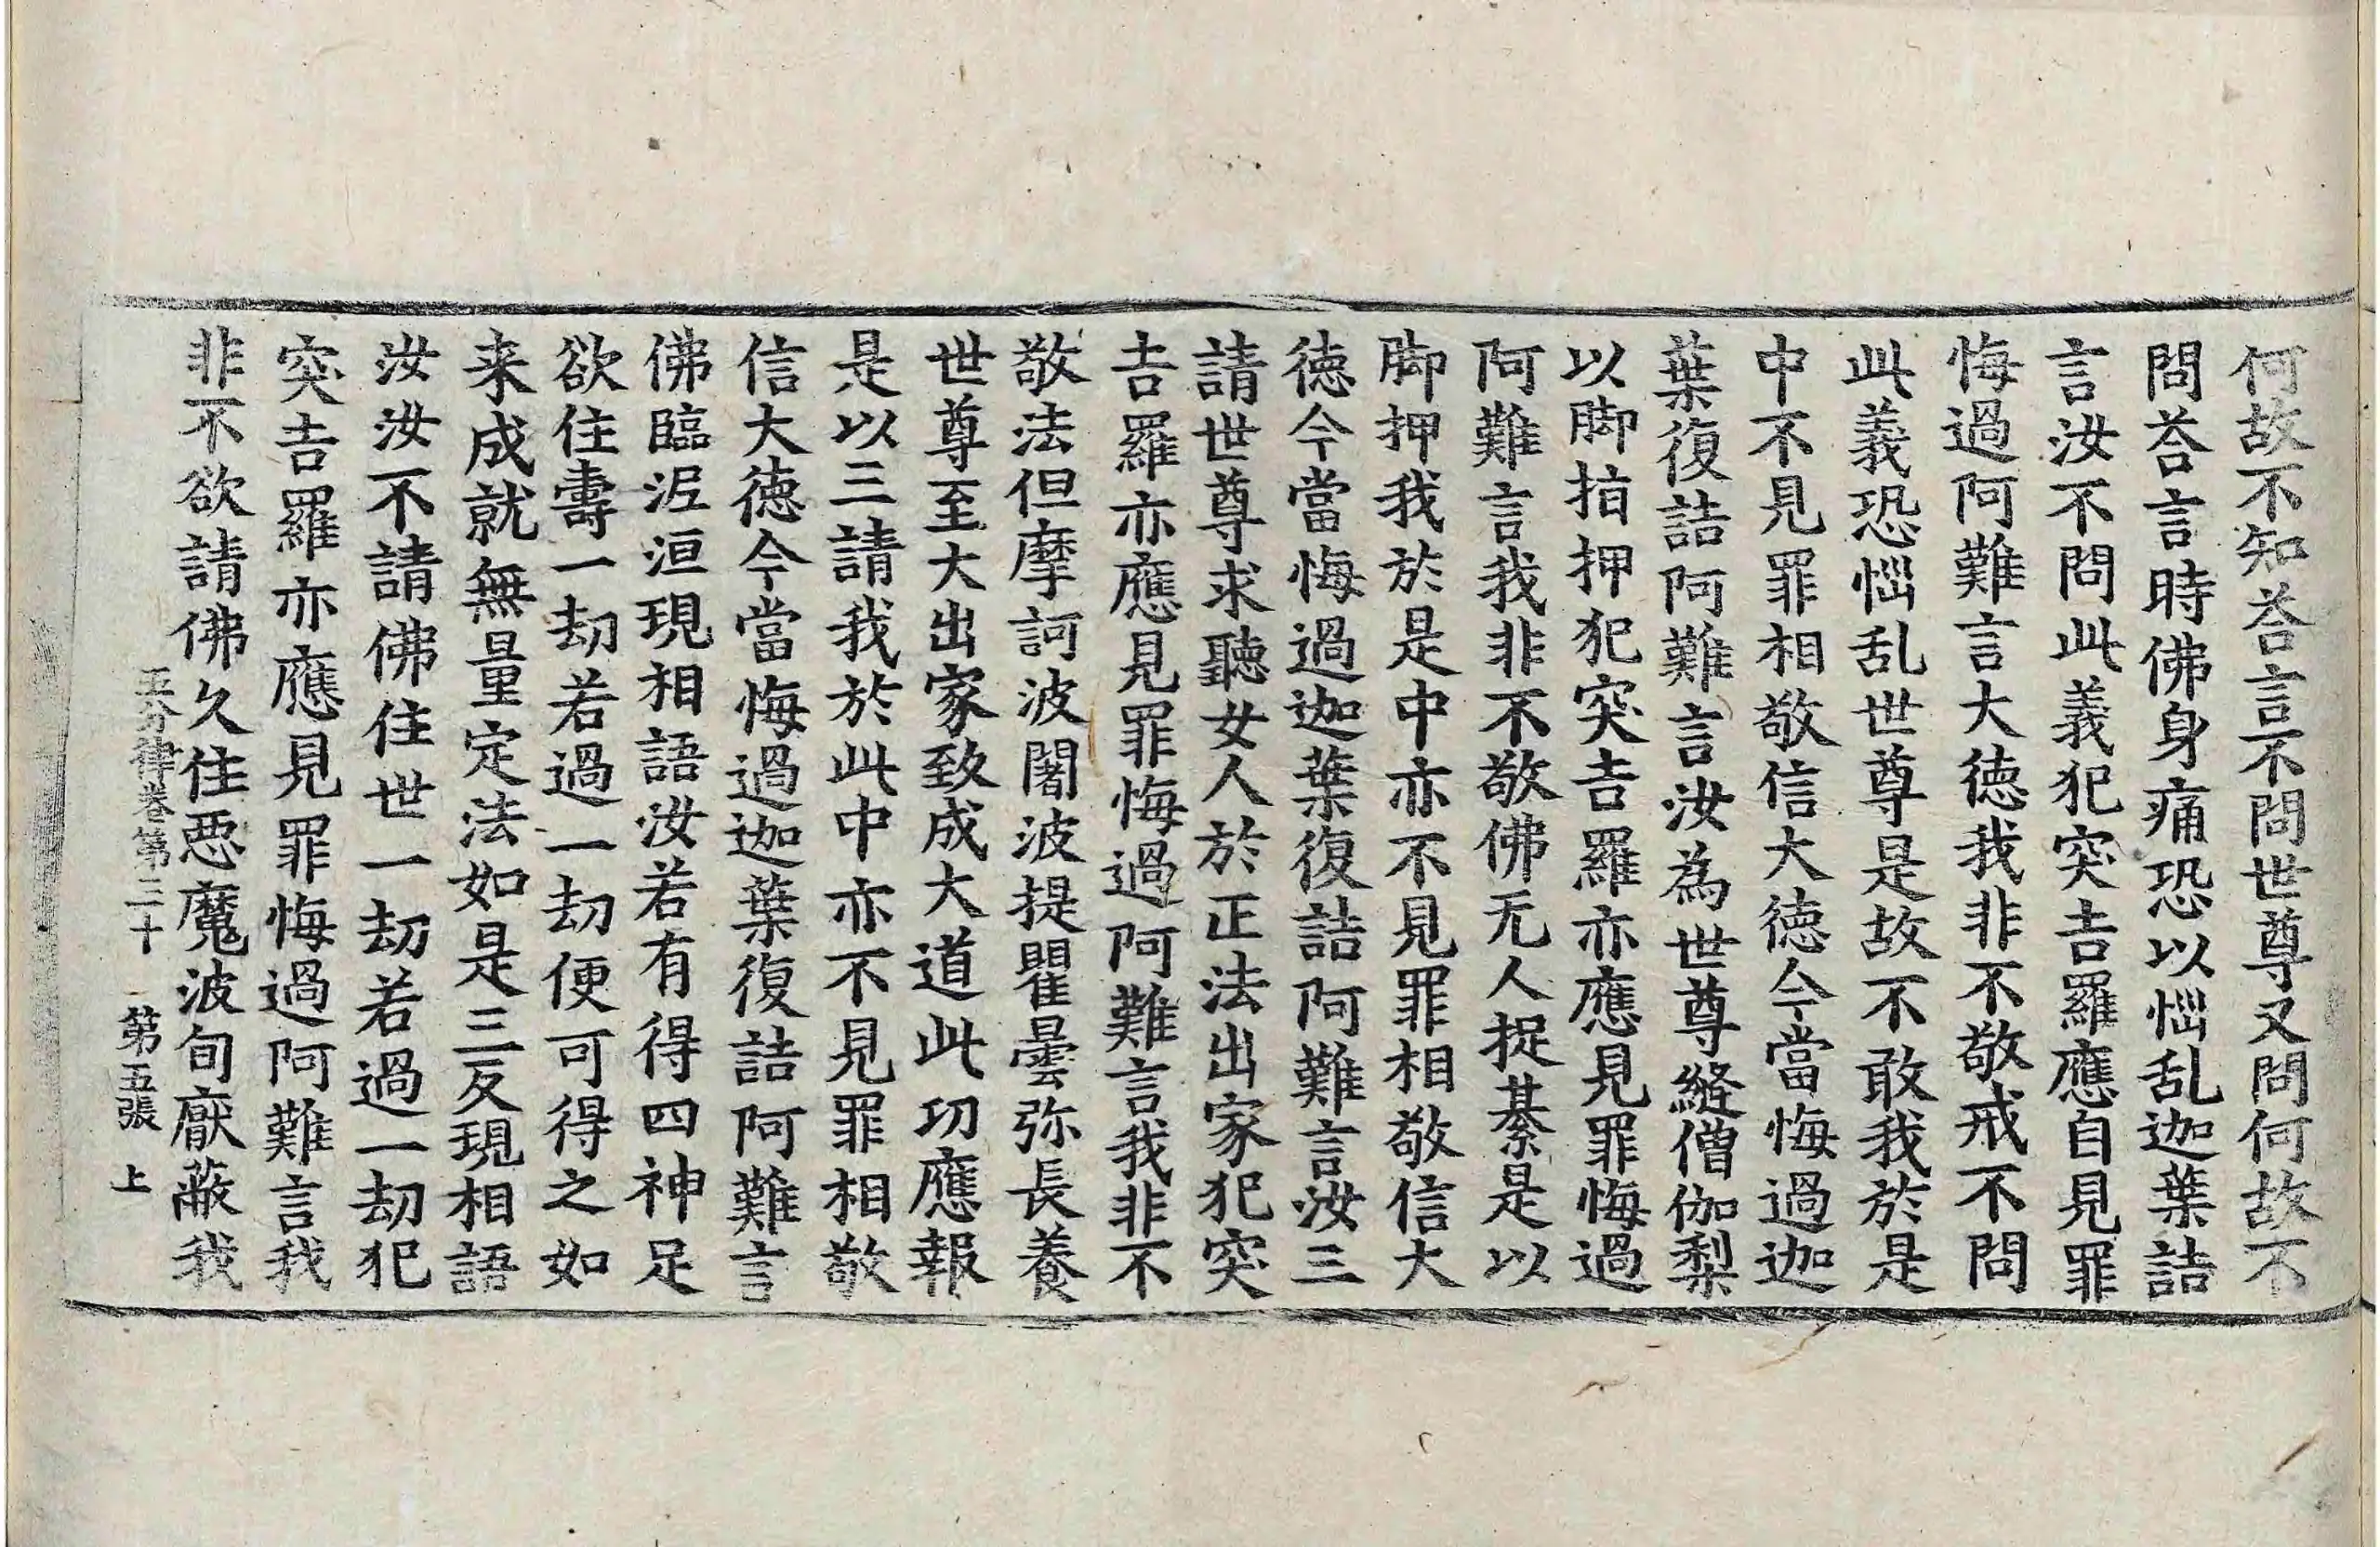 何故不知荅言不問世尊又問何故不
問荅言時佛身痛恐以惱乱迦葉詰
言汝不問此義犯突吉羅應自見罪
悔過阿難言大徳我非不敬戒不問
此義恐惱乱世尊是故不敢我於是
中不見罪相敬信大徳今當悔過迦
葉復詰阿難言汝為世尊縫僧伽梨
以脚指押犯突吉羅亦應見罪悔過
阿難言我非不敬佛无人捉綦是以
脚押我於是中亦不見罪相敬信大
徳今當悔過迦葉復詰阿難言汝三
請世尊求聽女人於正法出家犯突
吉羅亦應見罪悔過阿難言我非不
敬法但摩訶波闍波提瞿曇弥長養
世尊至大出家致成大道此功應報
是以三請我於此中亦不見罪相敬
信大徳今當悔過迦葉復詰阿難言
佛臨泥洹現相語汝若有得四神足
欲住壽一劫若過一劫便可得之如
来成就無量定法如是三反現相語
汝汝不請佛住世一劫若過一劫犯
突吉羅亦應見罪悔過阿難言我
非不欲請佛久住惡魔波旬厭蔽我
五分律卷第三十 第五張 上